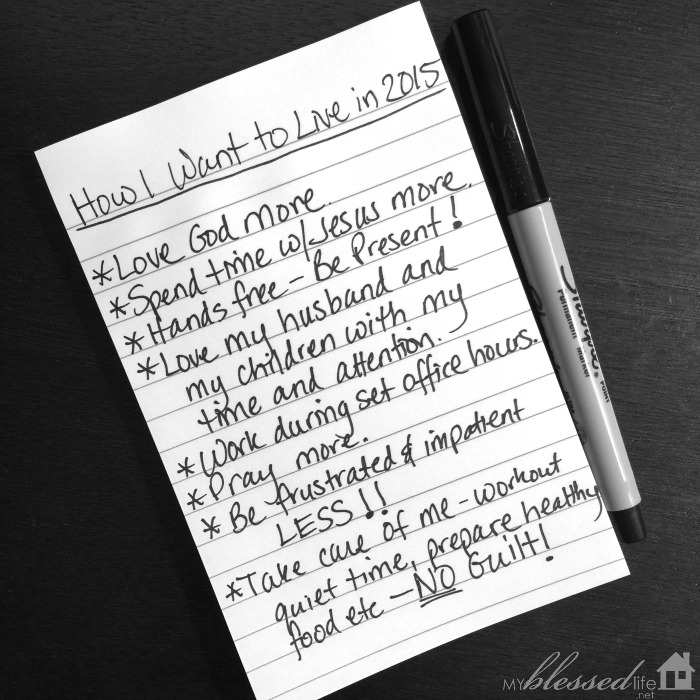 How I Want to Live in 2015
*Love God more.
*Spend time w/Jesus more.
*Hands free - Be Present!
*Love my husband and
my children with my
time and attention.
*Work during set office hours.
*Pray more.
*Be frustrated & impatient
LESS!!
*Take care of me - workout
quiet time, prepare healthy
food etc - NO Guilt!
Sharpie
PERMANENT MARKER
MY blessed life
.net